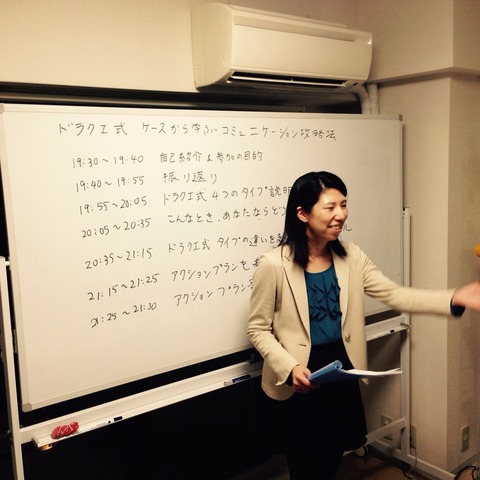 ドラクエ式 ケースから学ぶ コミュニケーション攻略法
19:30〜19:40 自己紹介&参加の目的
19:40〜19:55 振り返り
19:55〜20:05 ドラクエ式4つのタイプ説明
20:05〜20:35 こんなとき、あなたなら
20:35〜21:15 ドラクエ式タイプの違いを
21:15〜21:25 アクションプランを
21:25〜21:30 アクションプラン